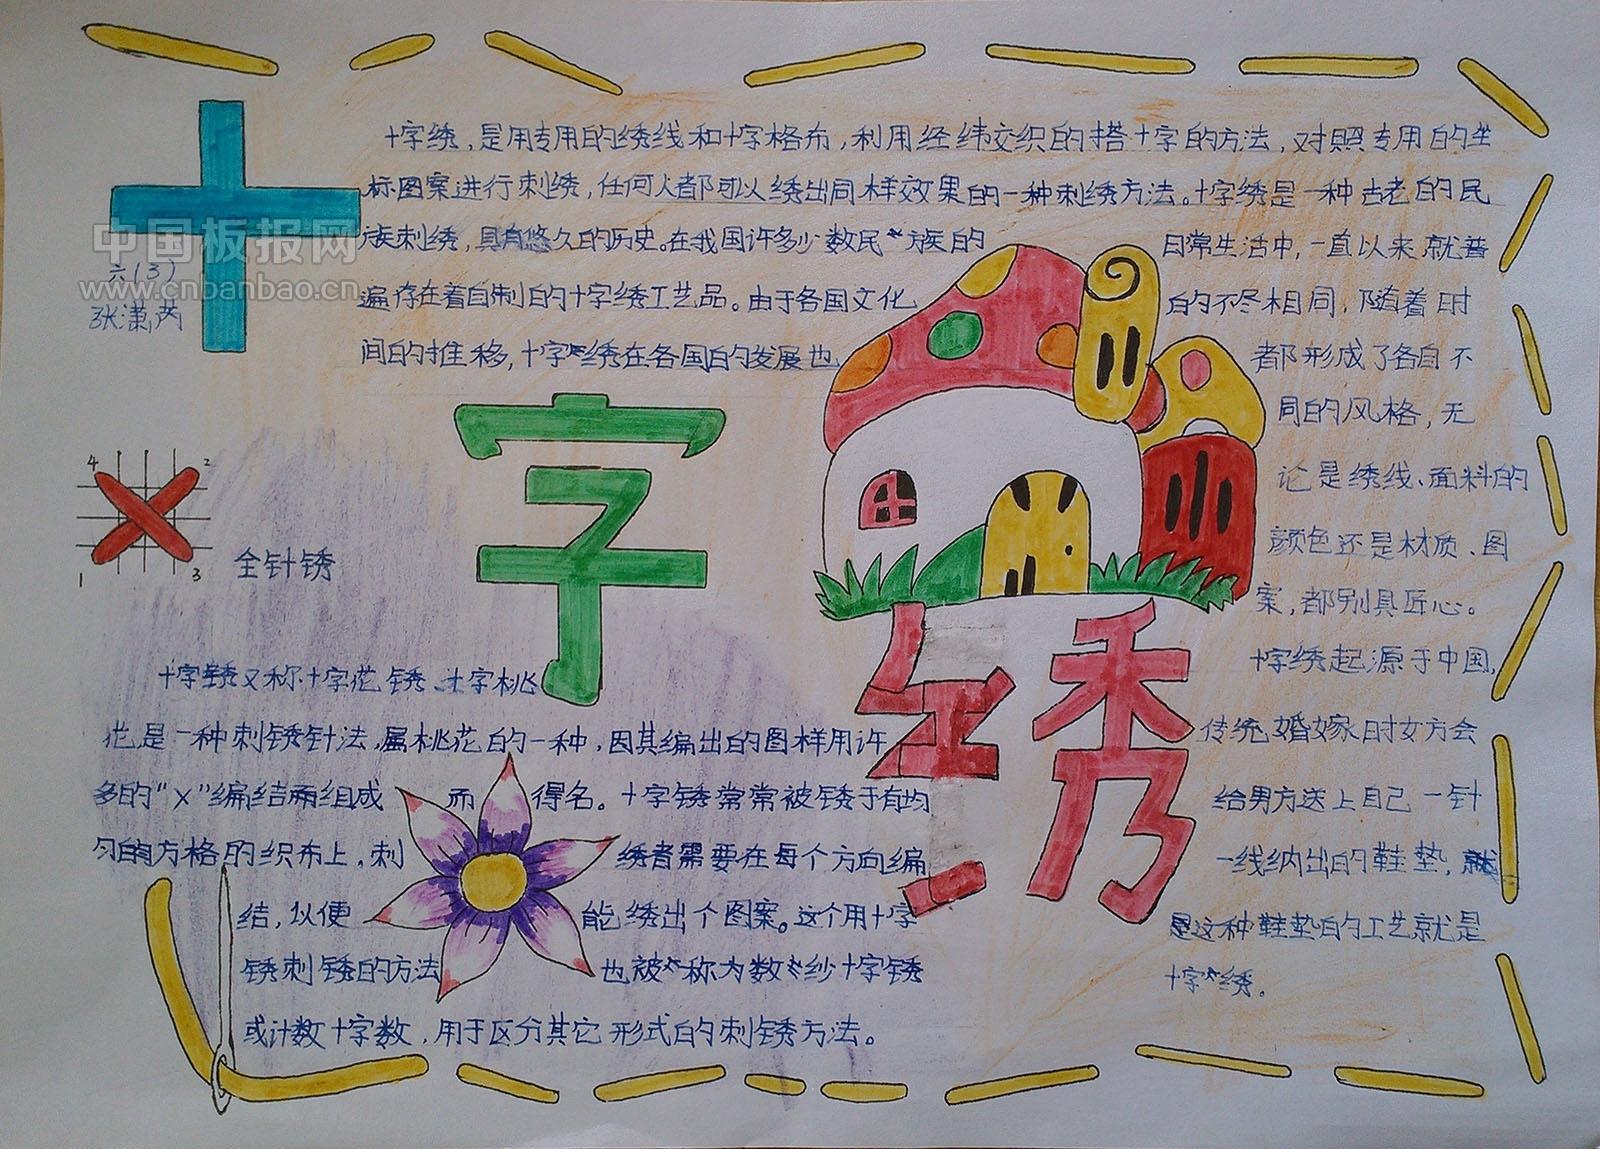 十字绣
中国板报网
www.cnbanbao.cn
六(3)
张潇
十字绣，是用专用的绣线和十字格布，利用经纬交织的搭十字的方法，对照专用的坐
标图案进行刺绣，任何人都可以绣出同样效果的一种刺绣方法。十字绣是一种古老的民
族刺绣，具有悠久的历史。在我国许多少数民族的日常生活中，一直以来就普
遍存在着自制的十字绣工艺品。由于各国文化的不尽相同，随着时
间的推移，十字绣在各国的发展也都形成了各自不
同的风格，无
论是绣线、面料的
颜色还是材质、图
案，都别具匠心。
十字绣起源于中国，
传统婚嫁时女方会
给男方送上自己一针
一线纳出的鞋垫，就
是这种鞋垫的工艺就是
十字绣。
4 2
1 3
全针锈
十字锈又称十字花锈、十字桃
花，是一种刺锈针法，属桃花的一种，因其编出的图样用许
多的“X”编结而组成而得名。十字锈常常被锈于有均
匀的方格的织布上。刺绣者需要在每个方向编
结，以便能绣出个图案。这个用十字
锈刺锈的方法也被称为数纱十字锈
或计数十字数，用于区分其它形式的刺锈方法。